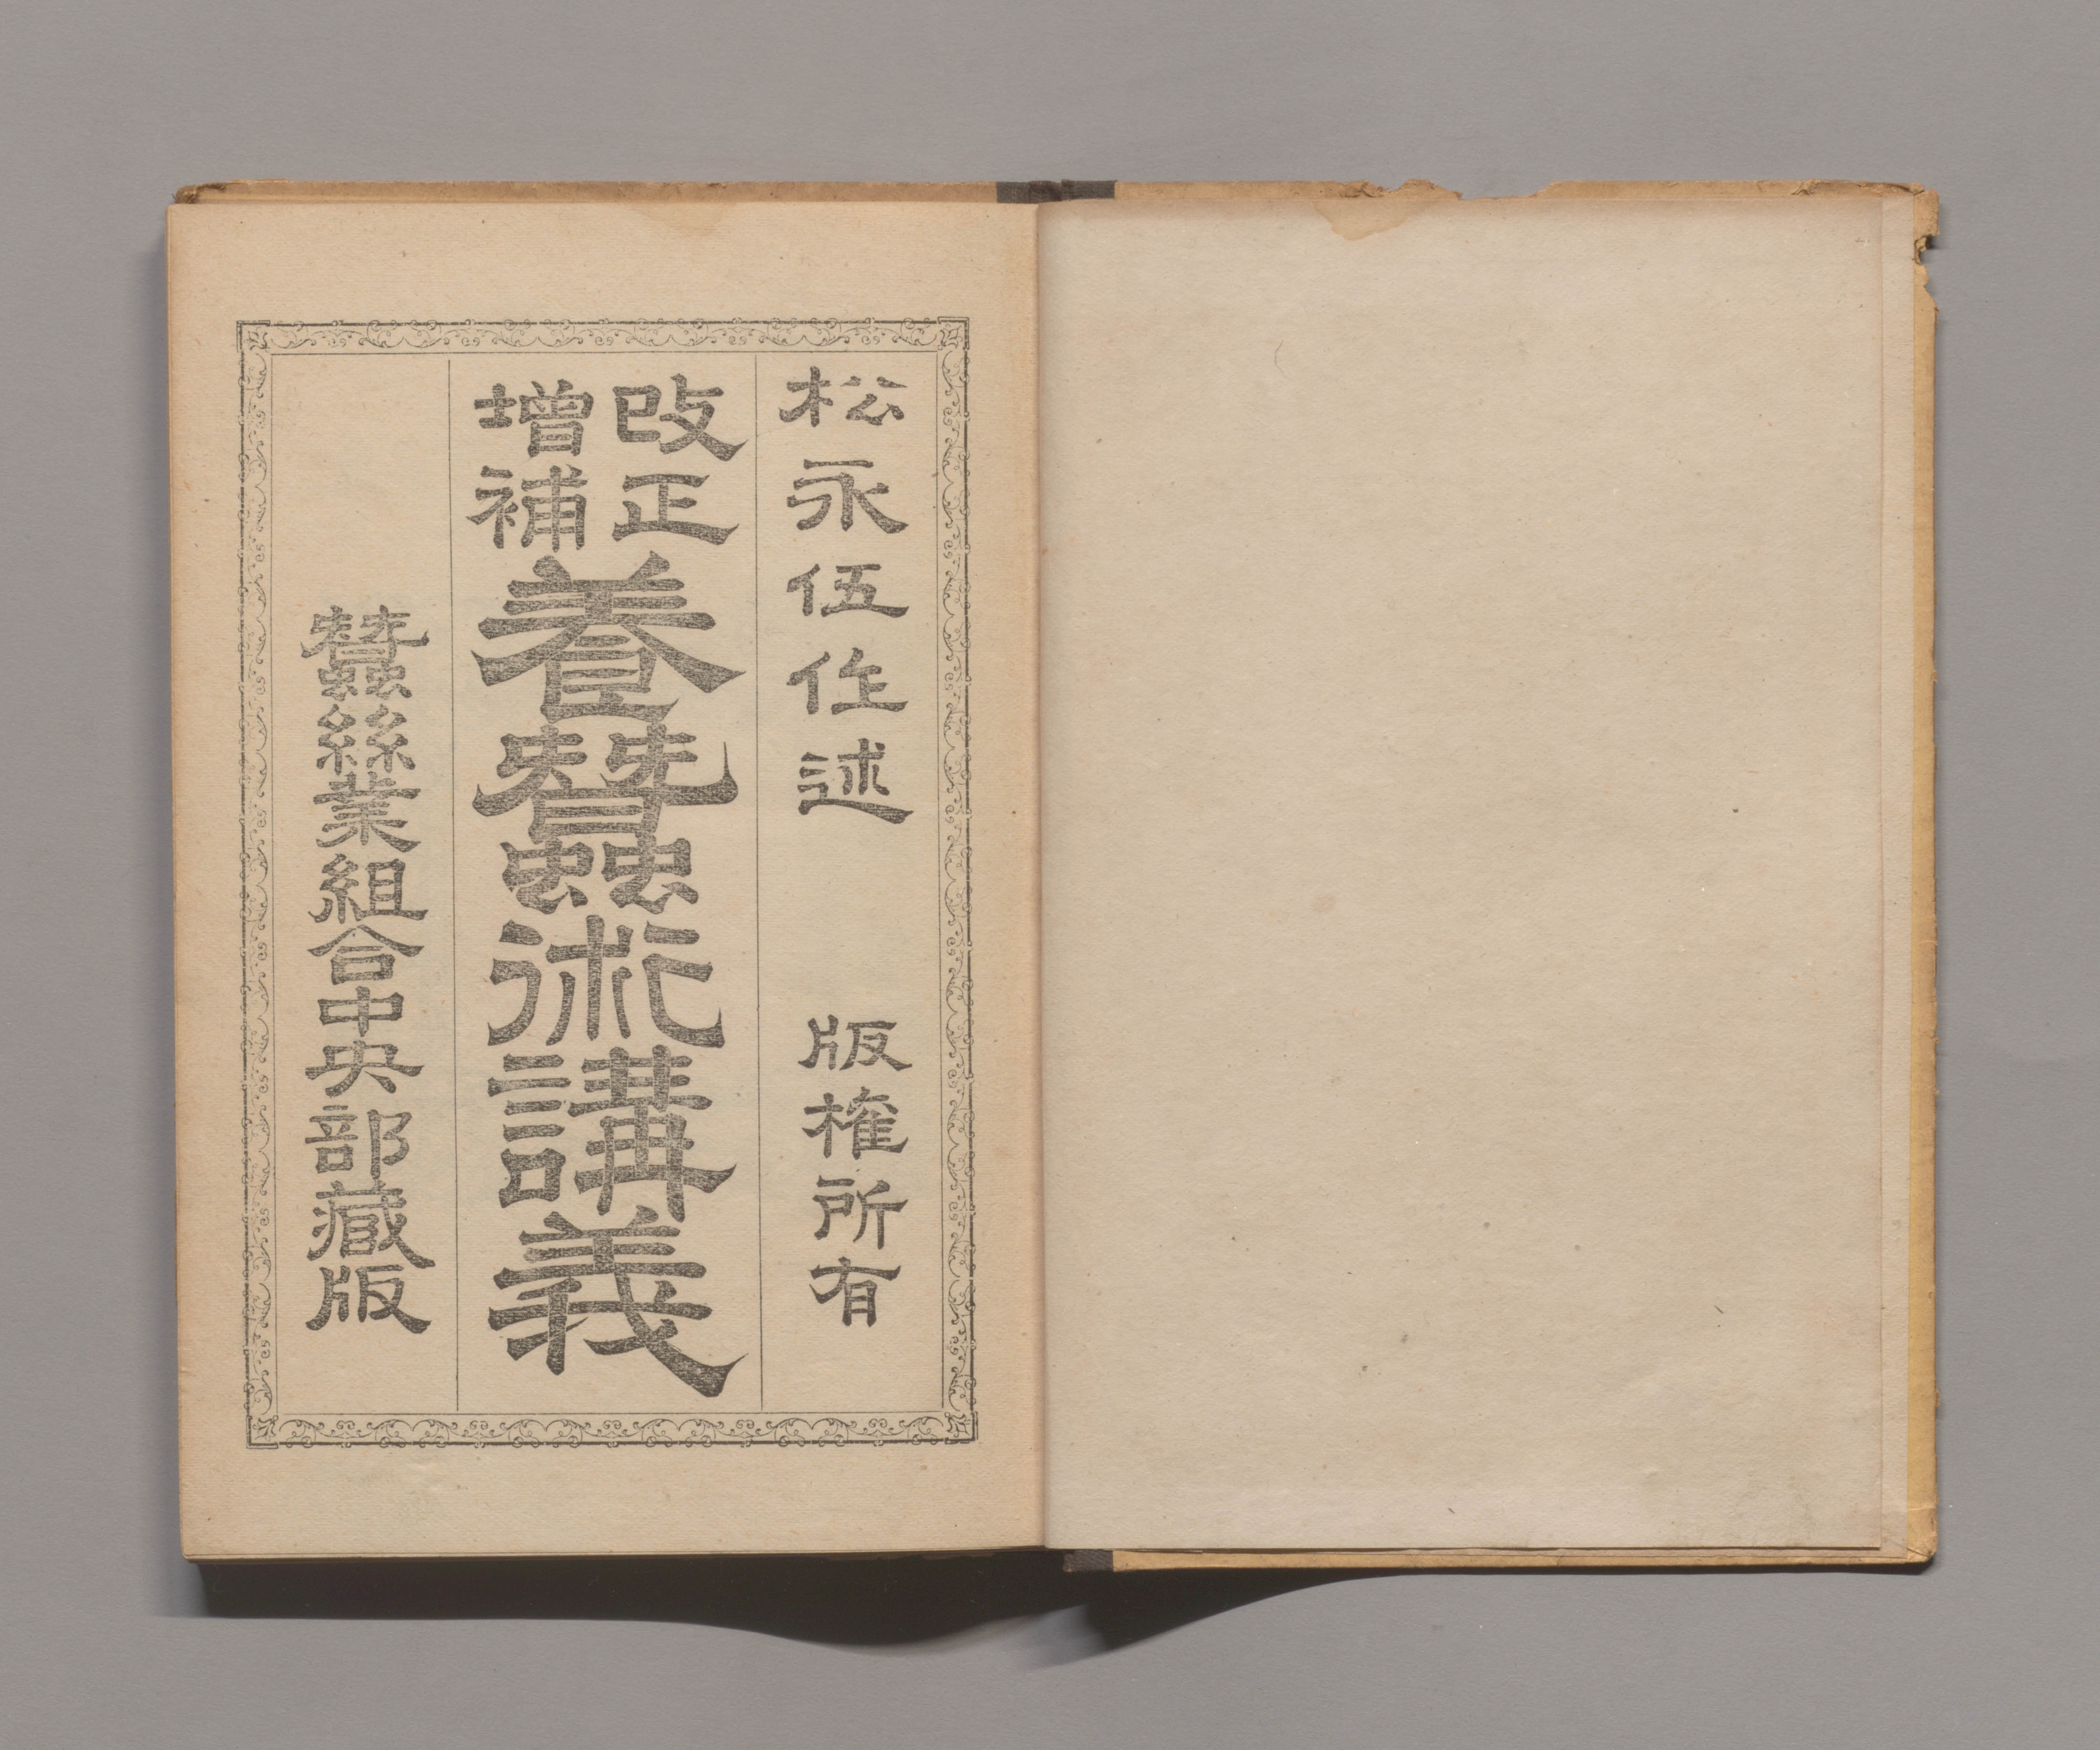 松永伍作述 版權所有
改正
增補
養蠶術講義
蠶絲業組合中央部藏版